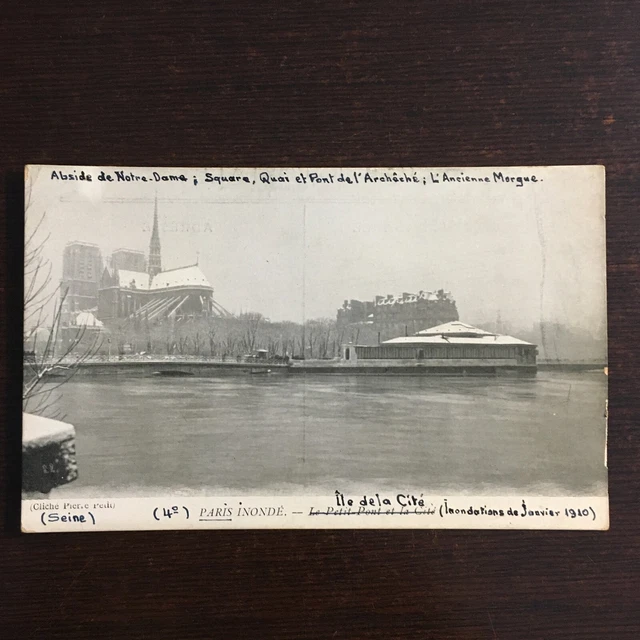 Abside de Notre-Dame ; Square, Quai et Pont de l'Archêché ; L'Ancienne Morgue.
(Cliché Pierre Petit)
Île de la Cité
(Seine) (4º) PARIS INONDÉ. — Le Petit-Pont et la Cité (Inondations de Janvier 1910)